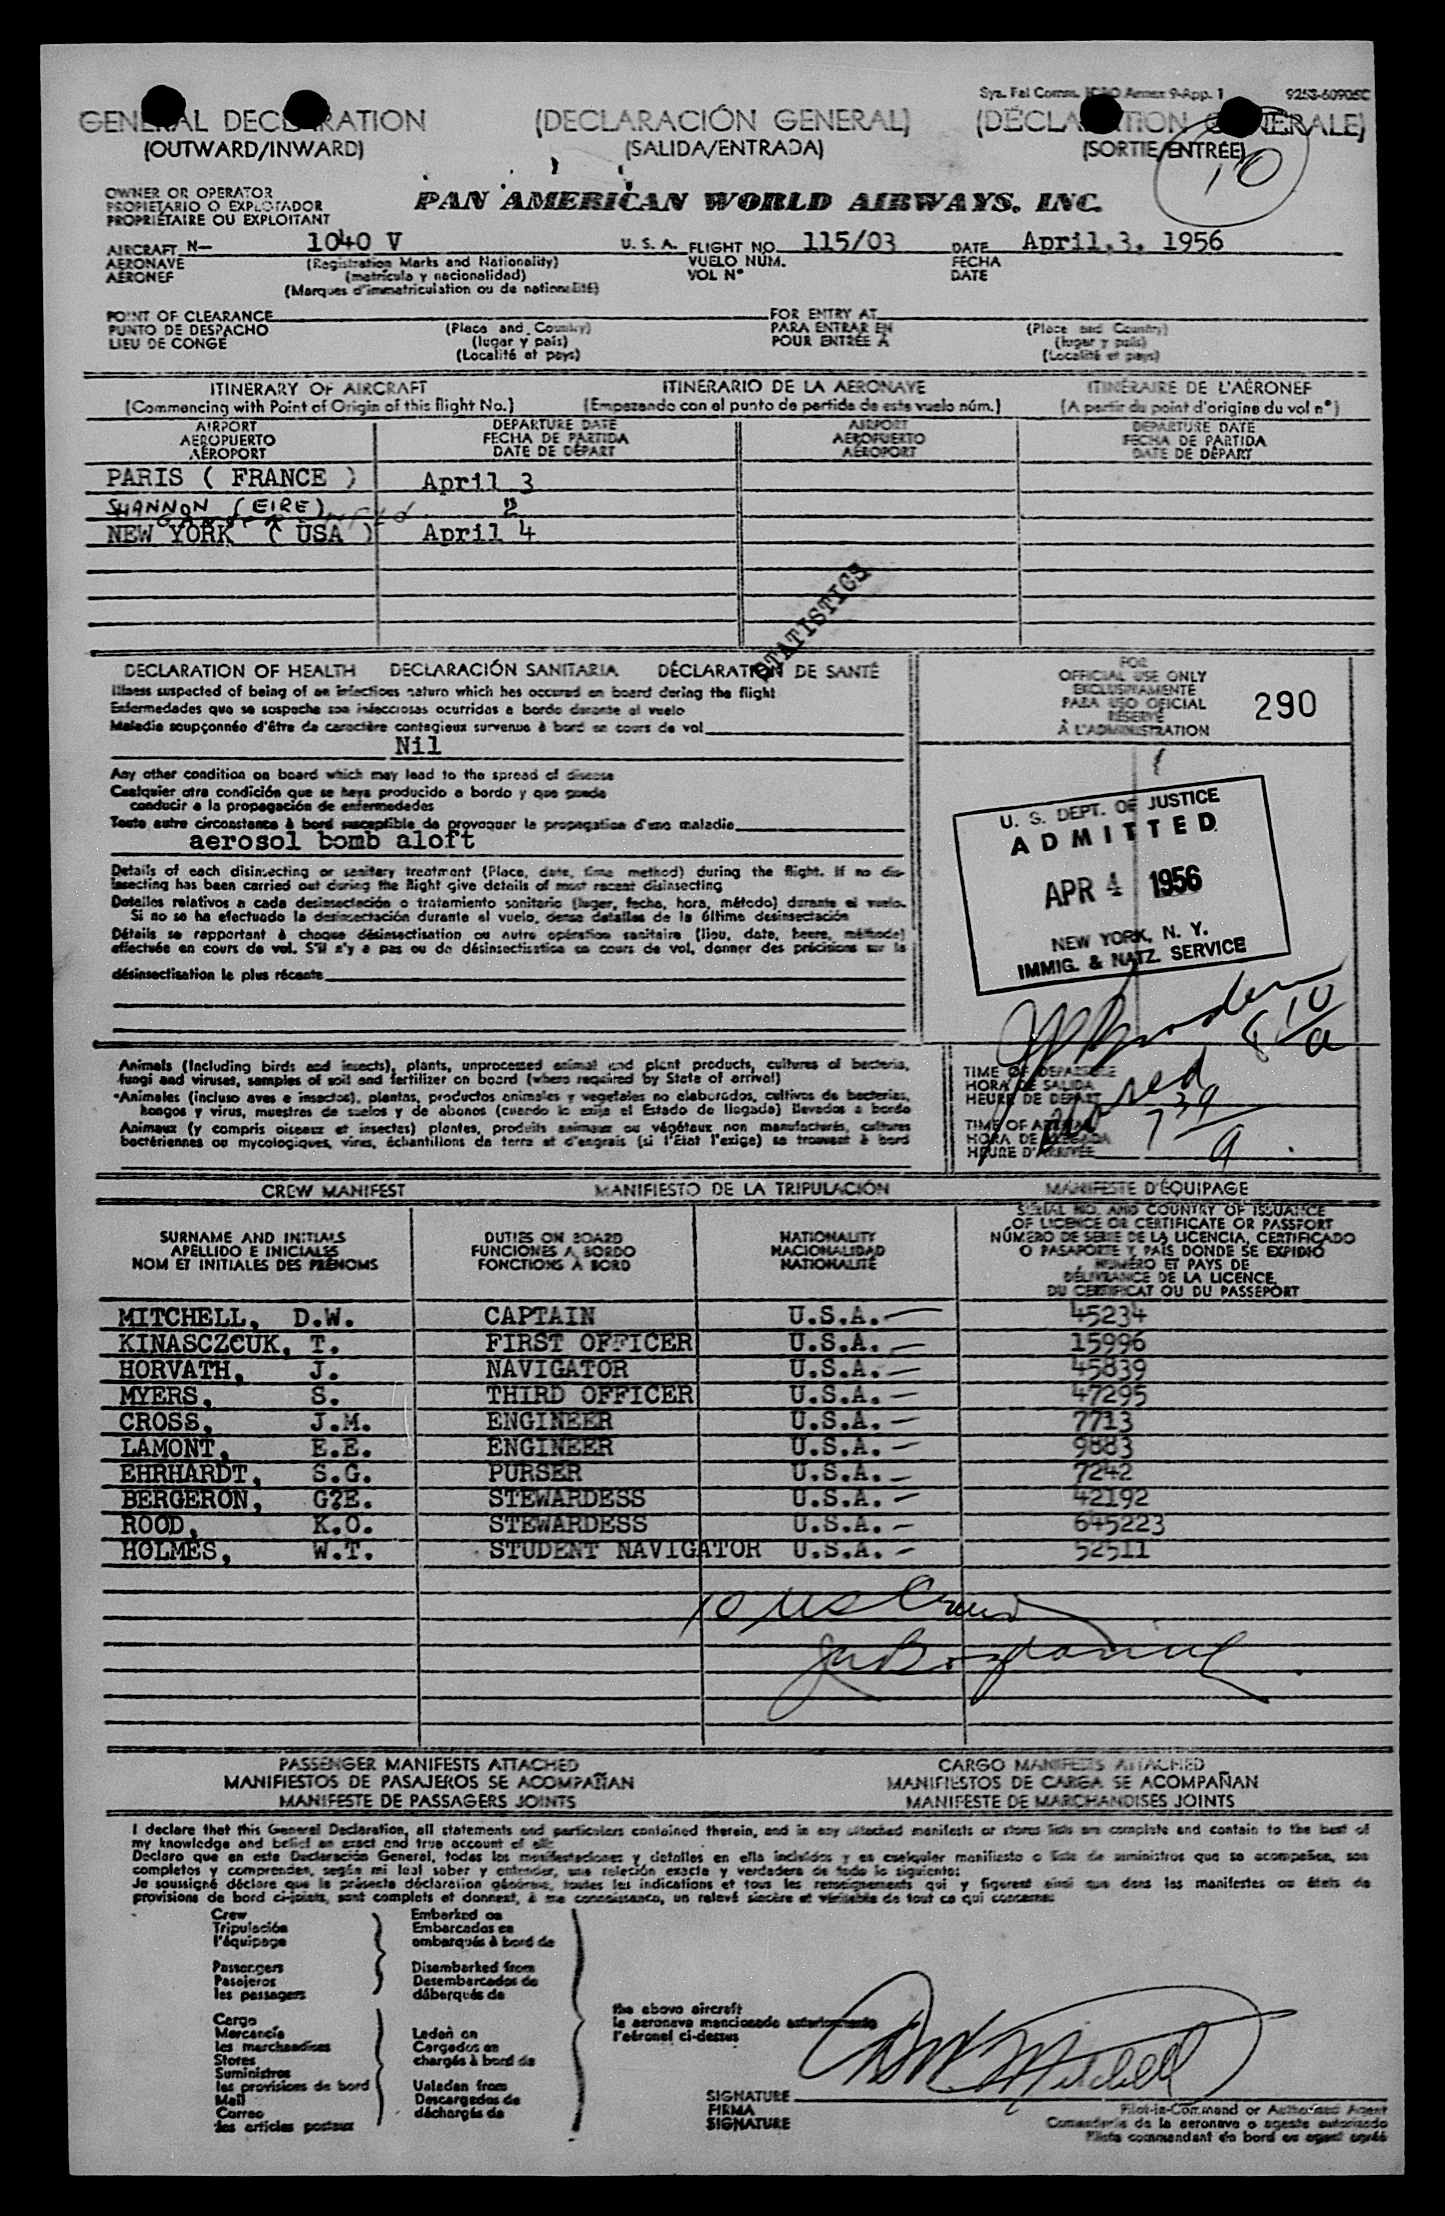 Sys. Fal Comm. ICAO Annex 9-App. 1 9253-60905C
GENERAL DECLARATION (DECLARACIÓN GENERAL) (DÉCLARATION GÉNÉRALE)
(OUTWARD/INWARD) (SALIDA/ENTRADA) (SORTIE/ENTRÉE)
10
OWNER OR OPERATOR
PROPIETARIO O EXPLOTADOR
PROPRIÉTAIRE OU EXPLOITANT
PAN AMERICAN WORLD AIRWAYS, INC.
AIRCRAFT N- 1040 V U. S. A. FLIGHT NO. 115/03 DATE April 3, 1956
AERONAVE (Registration Marks and Nationality) VUELO NUM. FECHA
AÉRONEF (matrícula y nacionalidad) VOL N° DATE
(Marques d'immatriculation ou de nationalité)
POINT OF CLEARANCE FOR ENTRY AT
PUNTO DE DESPACHO (Place and Country) PARA ENTRAR EN (Place and Country)
LIEU DE CONGÉ (lugar y país) POUR ENTRÉE À (lugar y país)
(Localité et pays) (Localité et pays)
ITINERARY OF AIRCRAFT ITINERARIO DE LA AERONAVE ITINÉRAIRE DE L'AÉRONEF
(Commencing with Point of Origin of this flight No.) (Empezando con el punto de partida de este vuelo núm.) (A partir du point d'origine du vol n°)
AIRPORT DEPARTURE DATE AIRPORT DEPARTURE DATE
AEROPUERTO FECHA DE PARTIDA AEROPUERTO FECHA DE PARTIDA
AÉROPORT DATE DE DÉPART AÉROPORT DATE DE DÉPART
PARIS ( FRANCE ) April 3
SHANNON (EIRE) "
NEW YORK ( USA ) April 4
STATISTICS
DECLARATION OF HEALTH DECLARACIÓN SANITARIA DÉCLARATION DE SANTÉ
Illness suspected of being of an infectious nature which has occured on board during the flight
Enfermedades que se sospeche son infecciosas ocurridas a bordo durante el vuelo
Maladie soupçonnée d'être de caractère contagieux survenue à bord en cours de vol
Nil
Any other condition on board which may lead to the spread of disease
Cualquier otra condición que se haya producido a bordo y que pueda
conducir a la propagación de enfermedades
Toute autre circonstance à bord susceptible de provoquer la propagation d'une maladie
aerosol bomb aloft
Details of each disinsecting or sanitary treatment (Place, date, time method) during the flight. If no dis-
insecting has been carried out during the flight give details of most recent disinsecting
Detalles relativos a cada desinsectación o tratamiento sanitario (lugar, fecha, hora, método) durante el vuelo.
Si no se ha efectuado la desinsectación durante el vuelo, dense detalles de la última desinsectación
Détails se rapportant à chaque désinsectisation ou autre opération sanitaire (lieu, date, heure, méthode)
effectuée en cours de vol. S'il n'y a pas eu de désinsectisation en cours de vol, donner des précisions sur la
désinsectisation la plus récente
FOR
OFFICIAL USE ONLY
EXCLUSIVAMENTE
PARA USO OFICIAL
RÉSERVÉ
À L'ADMINISTRATION
290
U. S. DEPT. OF JUSTICE
ADMITTED
APR 4 1956
NEW YORK, N. Y.
IMMIG. & NATZ. SERVICE
8 10/a
Animals (Including birds and insects), plants, unprocessed animal and plant products, cultures of bacteria,
fungi and viruses, samples of soil and fertilizer on board (where required by State of arrival)
Animales (incluso aves e insectos), plantas, productos animales y vegetales no elaborados, cultivos de bacterias,
hongos y virus, muestras de suelos y de abonos (cuando lo exija el Estado de llegada) llevados a bordo
Animaux (y compris oiseaux et insectes) plantes, produits animaux ou végétaux non manufacturés, cultures
bactériennes ou mycologiques, virus, échantillons de terre et d'engrais (si l'État l'exige) se trouvant à bord
TIME OF DEPARTURE
HORA DE SALIDA
HEURE DE DÉPART
TIME OF ARRIVAL
HORA DE LLEGADA
HEURE D'ARRIVÉE
7 39/a
CREW MANIFEST MANIFIESTO DE LA TRIPULACIÓN MANIFESTE D'ÉQUIPAGE
SURNAME AND INITIALS
APELLIDO E INICIALES
NOM ET INITIALES DES PRÉNOMS
DUTIES ON BOARD
FUNCIONES A BORDO
FONCTIONS À BORD
NATIONALITY
NACIONALIDAD
NATIONALITÉ
SERIAL NO. AND COUNTRY OF ISSUANCE
OF LICENCE OR CERTIFICATE OR PASSPORT
NÚMERO DE SERIE DE LA LICENCIA, CERTIFICADO
O PASAPORTE Y PAÍS DONDE SE EXPIDIÓ
NUMÉRO ET PAYS DE
DÉLIVRANCE DE LA LICENCE,
DU CERTIFICAT OU DU PASSEPORT
MITCHELL, D.W. CAPTAIN U.S.A. 45234
KINASCZCUK, T. FIRST OFFICER U.S.A. 15996
HORVATH, J. NAVIGATOR U.S.A. 45839
MYERS, S. THIRD OFFICER U.S.A. 47295
CROSS, J.M. ENGINEER U.S.A. 7713
LAMONT, E.E. ENGINEER U.S.A. 9883
EHRHARDT, S.G. PURSER U.S.A. 7242
BERGERON, G?E. STEWARDESS U.S.A. 42192
ROOD, K.O. STEWARDESS U.S.A. 645223
HOLMES, W.T. STUDENT NAVIGATOR U.S.A. 52511
10 US Crew
PASSENGER MANIFESTS ATTACHED CARGO MANIFESTS ATTACHED
MANIFIESTOS DE PASAJEROS SE ACOMPAÑAN MANIFIESTOS DE CARGA SE ACOMPAÑAN
MANIFESTE DE PASSAGERS JOINTS MANIFESTE DE MARCHANDISES JOINTS
I declare that this General Declaration, all statements and particulars contained therein, and in any attached manifests or stores lists are complete and contain to the best of
my knowledge and belief an exact and true account of all:
Declaro que en esta Declaración General, todas las manifestaciones y detalles en ella incluidos y en cualquier manifiesto o lista de suministros que se acompañen, son
completos y comprenden, según mi leal saber y entender, una relación exacta y verdadera de todo lo siguiente:
Je soussigné déclare que la présente déclaration générale, toutes les indications et tous les renseignements qui y figurent ainsi que dans les manifestes ou états de
provisions de bord ci-joints, sont complets et donnent, à ma connaissance, un relevé sincère et véritable de tout ce qui concerne:
Crew Embarked on
Tripulación Embarcados en
l'équipage embarqués à bord de
Passengers Disembarked from
Pasajeros Desembarcados de
les passagers débarqués de
Cargo
Mercancía Laden on
les marchandises Cargados en
Stores chargés à bord de
Suministros
les provisions de bord Unladen from
Mail Descargados de
Correo déchargés de
les articles postaux
the above aircraft
la aeronave mencionada anteriormente
l'aéronef ci-dessus
DW Mitchell
SIGNATURE
FIRMA
SIGNATURE
Pilot-in-Command or Authorized Agent
Comandante de la aeronave o agente autorizado
Pilote commandant de bord ou agent agréé